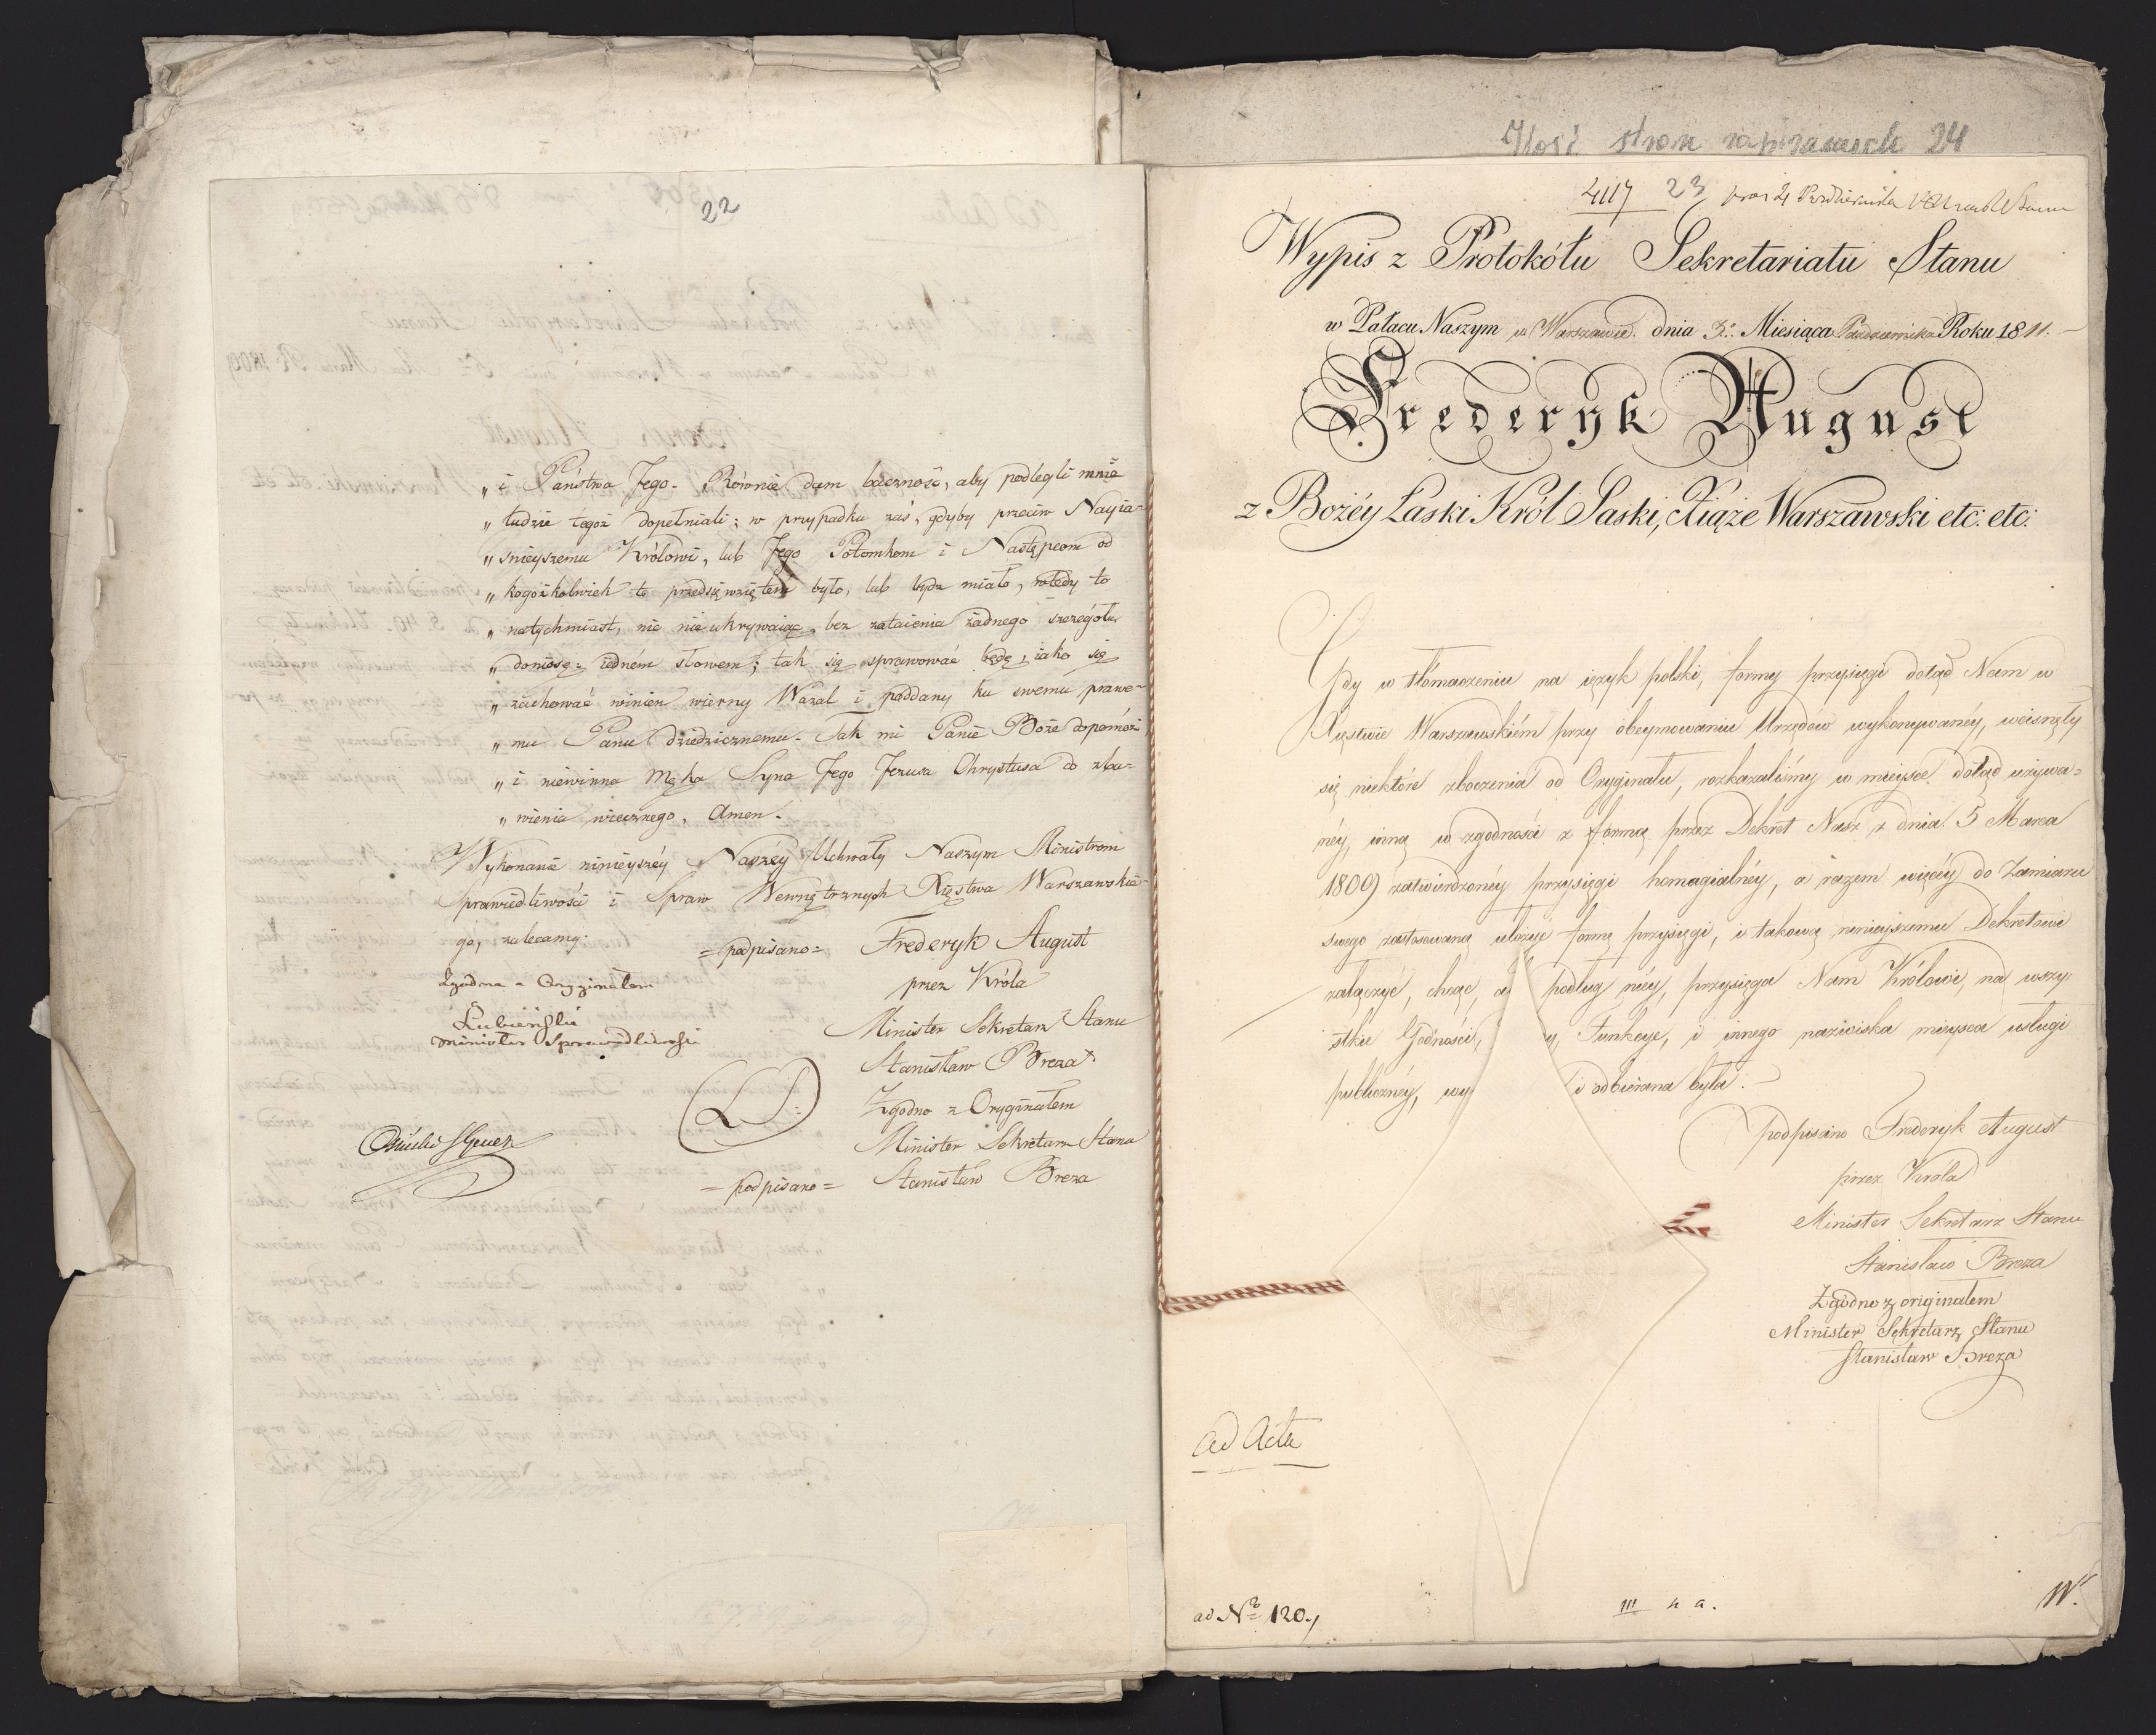 22
„ i Państwa Jego. Równie dam baczność, aby podlegli mnie
„ ludzie tegoż dopełniali; w przypadku zaś, gdyby przeciw Nayia-
„ śnieyszemu Królowi, lub Jego Potomkom i Następcom od
„ kogożkolwiek to przedsięwziętem było, lub bydz miało, wtedy to
„ natychmiast, nic nieukrywaiąc, bez zataienia żadnego szczegółu
„ doniosę; iedném słowem; tak się sprawować będę, iako się
„ zachować winien wierny Wazal i poddany ku swemu prawe-
„ mu Panu dziedzicznemu. Tak mi Panie Boże dopomóż
„ i niewinna Męka Syna Jego Jezusa Chrystusa do zba-
„ wienia wiecznego. Amen.
Wykonanie ninieyszéy Naszéy Uchwały Naszym Ministrom
Sprawiedliwości i Spraw Wewnętrznych Xięstwa Warszawskie-
go, zalecamy.
=podpisano= Frederyk August
przez Króla
Minister Sekretarz Stanu
Stanisław Breza
Zgodno z Oryginałem
Minister Sekretarz Stanu
=podpisano= Stanisław Breza
Zgodno z Oryginałem
Łubieński
Minister Sprawiedliwości
LS:
Ilość stron zapisanych 24
4117 23
Wypis z Protokółu Sekretariatu Stanu
w Pałacu Naszym w Warszawie dnia Miesiąca Października Roku 1811.
Frederyk August
z Bożéy Łaski Król Saski, Xiąże Warszawski etc: etc:
Gdy w tłomaczeniu na ięzyk polski, formy przysięgi dotąd Nam w
Xięstwie Warszawskiém przy obeymowaniu Urzędów wykonywanéy, wcisnęły
się niektóre zboczenia od Oryginału, rozkazaliśmy w mieysce dotąd używa=
néy, inną w zgodności z formą przez Dekret Nasz z dnia 5 Marca
1809 zatwierdzonéy przysięgi homagialnéy, a razem więcéy do Zamiaru
swego zastosowaną ułożyć formę przysięgi, i takową ninieyszemu Dekretowi
załączyć, chcąc, a podług niéy, przysięga Nam Królowi, na wszy-
stkie Godności, y, Funkcye, i innego nazwiska mieysca usługi
publicznéy, wy i odbierana była.
podpisano Frederyk August
przez Króla
Minister Sekretarz Stanu
Stanisław Breza
Zgodno z originałem
Minister Sekretarz Stanu
Stanisław Breza
Ad Acta
ad No 120.